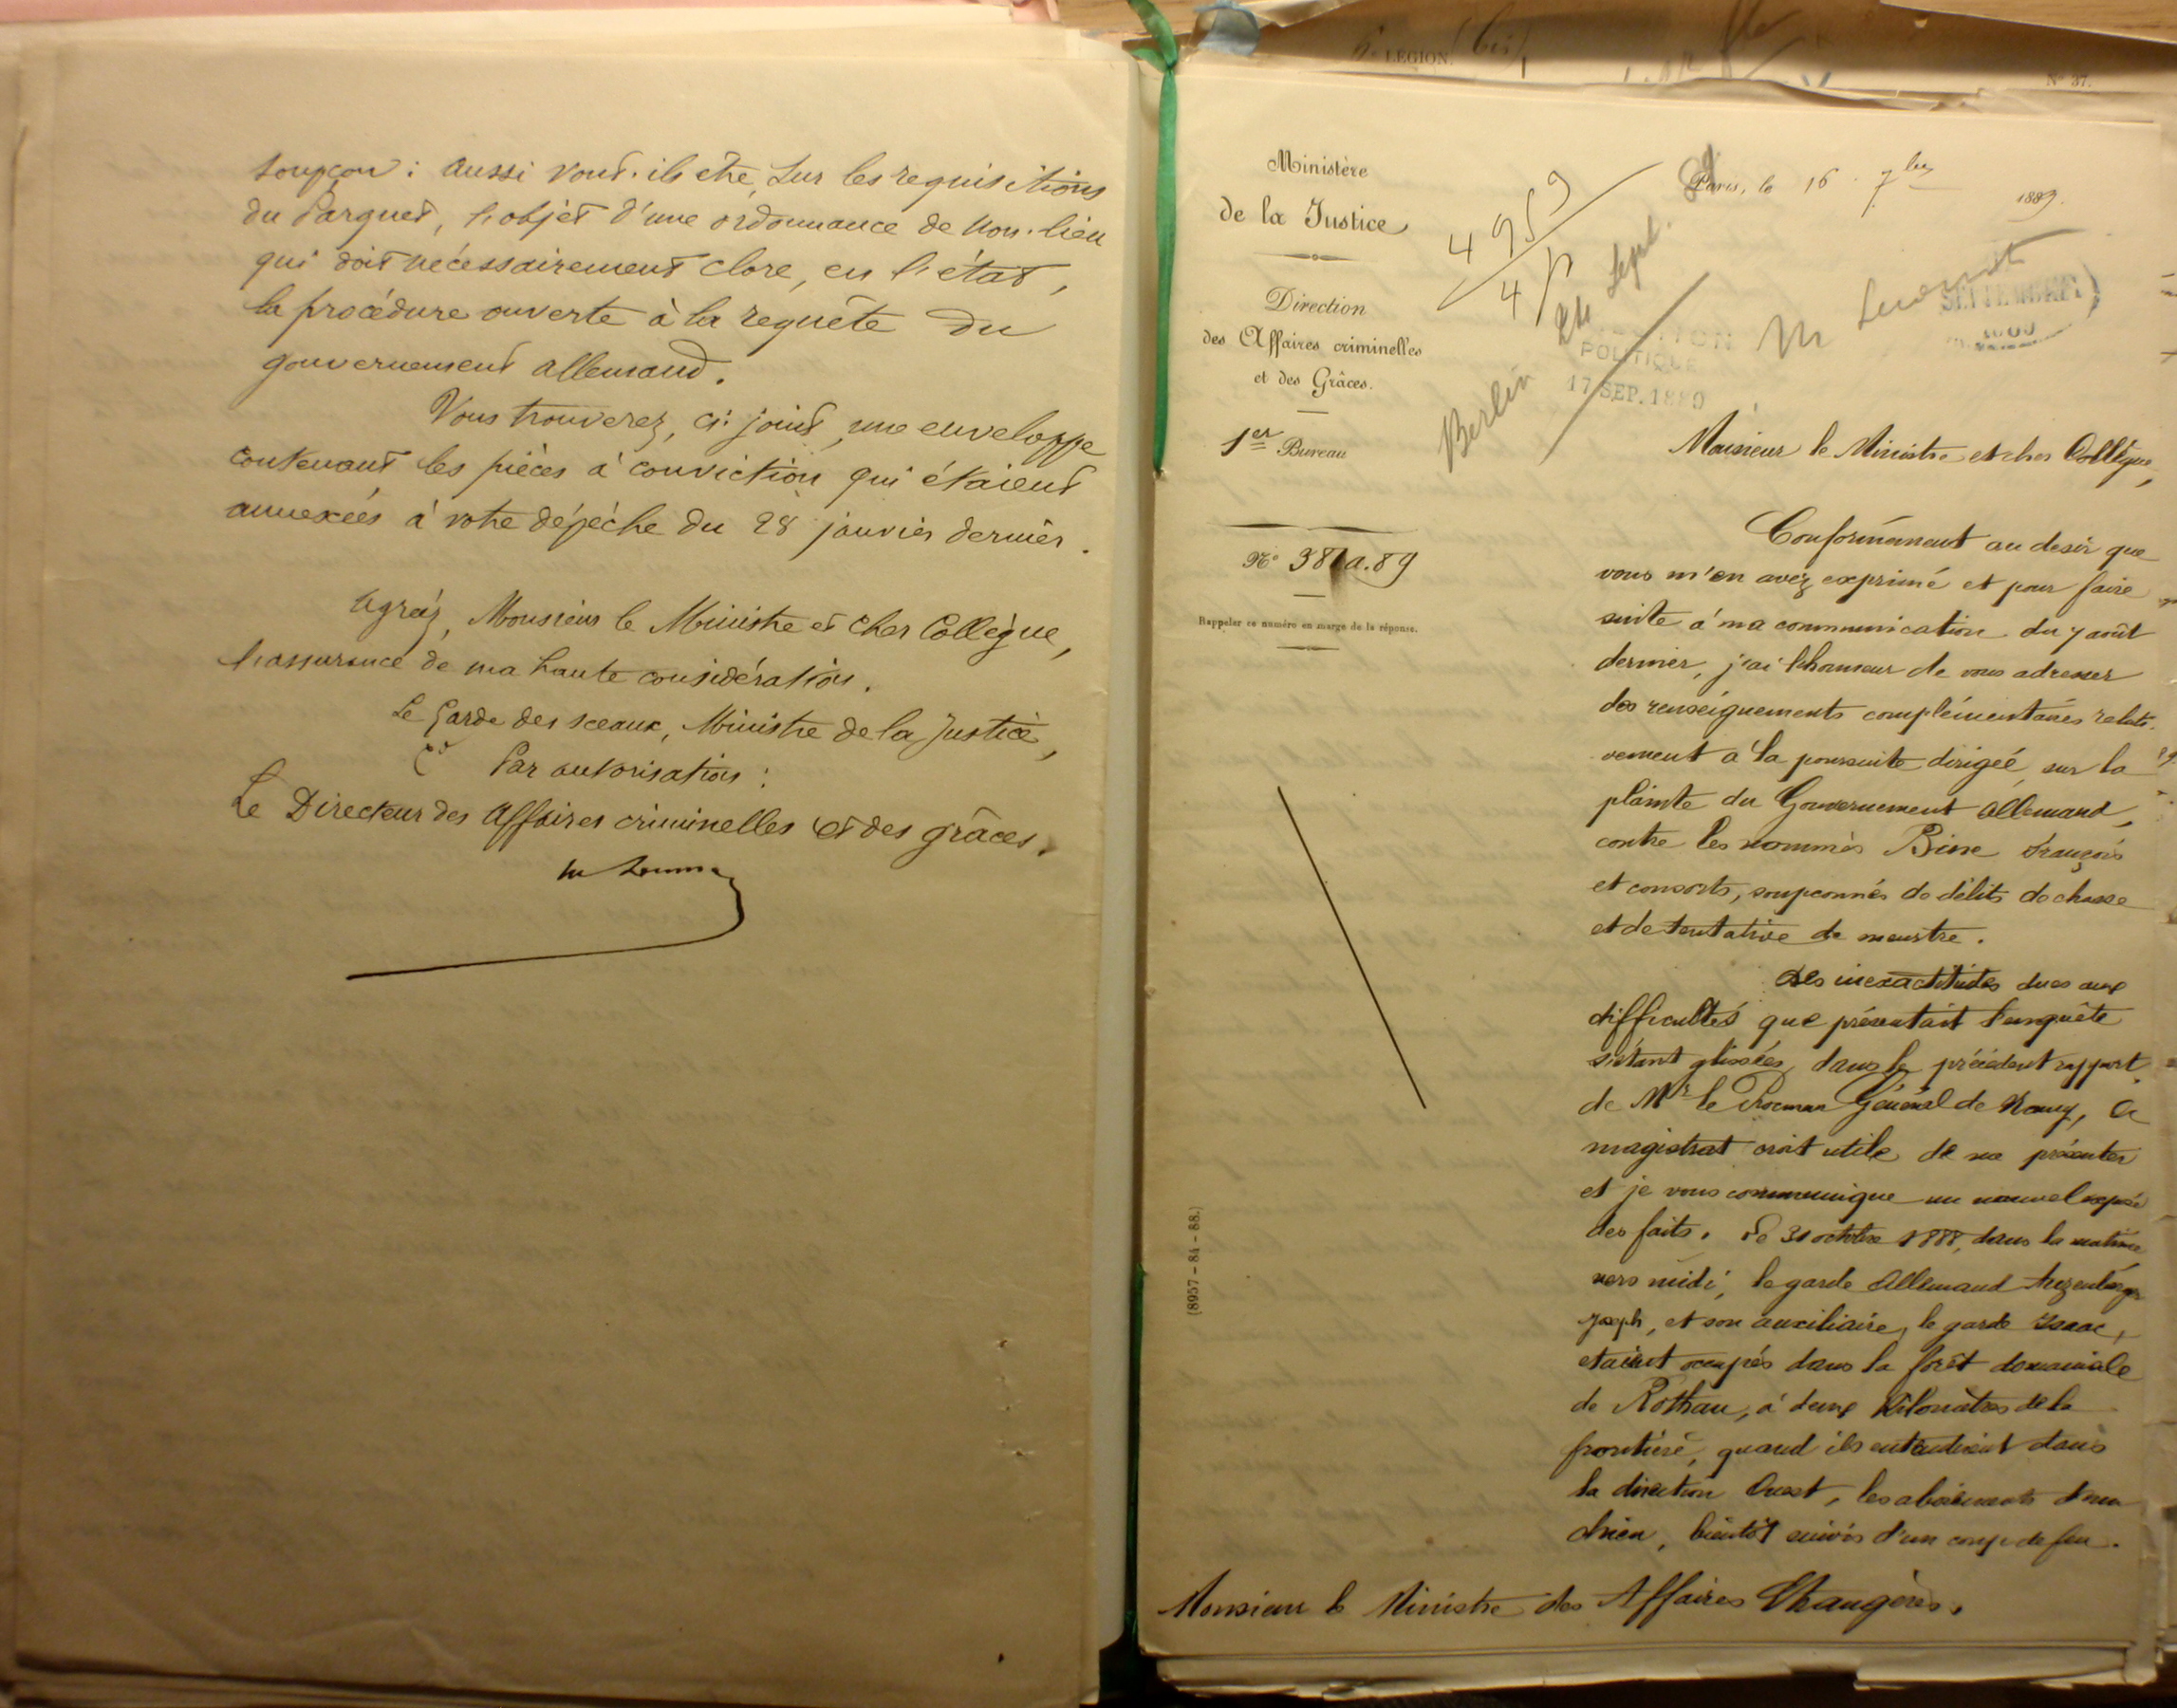 soupçon : aussi vont-ils être, sur les requisitions
du Parquet, l'objet d'une ordonnance de non-lieu
qui doit nécessairement clore, en l'état,
la procédure ouverte à la requête du
gouvernement allemand.
Vous trouverez, ci-joint, une enveloppe
contenant les pièces à conviction qui étaient
annexées à votre dépêche du 28 janvier dernier.
Agréez, Monsieur le Ministre et cher Collègue,
l'assurance de ma haute considération.
Le Garde des sceaux, Ministre de la Justice,
Par autorisation :
Le Directeur des Affaires criminelles et des grâces.
6e LEGION. (bis)
N° 37.
Ministère
de la Justice
Direction
des Affaires criminelles
et des Grâces.
1er Bureau
N° 381 a. 89
Rappeler ce numéro en marge de la réponse.
(8957 - 84 - 88.)
4959
Paris, le 16 7bre 1889.
Berlin 24 Sept.
POLITIQUE
17 SEP. 1889
SEPTEMBRE
Monsieur le Ministre et cher Collègue,
Conformément au desir que
vous m'en avez exprimé et pour faire
suite à ma communication du 7 août
dernier, j'ai l'honneur de vous adresser
des renseignements complémentaires relati-
vement à la poursuite dirigée, sur la
plainte du Gouvernement Allemand,
contre les nommés Bine François
et consorts, soupçonnés de délits de chasse
et de tentative de meurtre.
Des inexactitudes dues aux
difficultés que présentait l'enquête
s'étant glissées, dans le précédent rapport
de Mr le Procureur Général de Nancy, ce
magistrat croit utile de me présenter
et je vous communique un nouvel exposé
des faits. Le 31 octobre 1888, dans la matinée
vers midi, le garde Allemand
Joseph, et son auxiliaire, le garde Isaac,
etaient occupés dans la forêt domaniale
de Rothau, à deux kilomètres de la
frontière, quand ils entendirent dans
la direction Ouest, les aboiements d'un
chien, bientôt suivis d'un coup de feu.
Monsieur le Ministre des Affaires Etrangères.